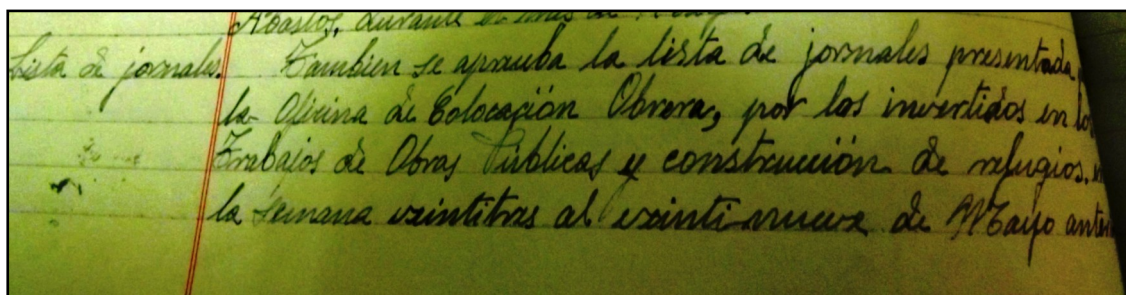 Abastos, durante el mes de
Lista de jornales. Tambien se aprueba la lista de jornales presentada
la Oficina de Colocación Obrera, por los invertidos en los
Trabajos de Obras Públicas y construcción de refugios,
la semana veintitres al veintinueve de Mayo